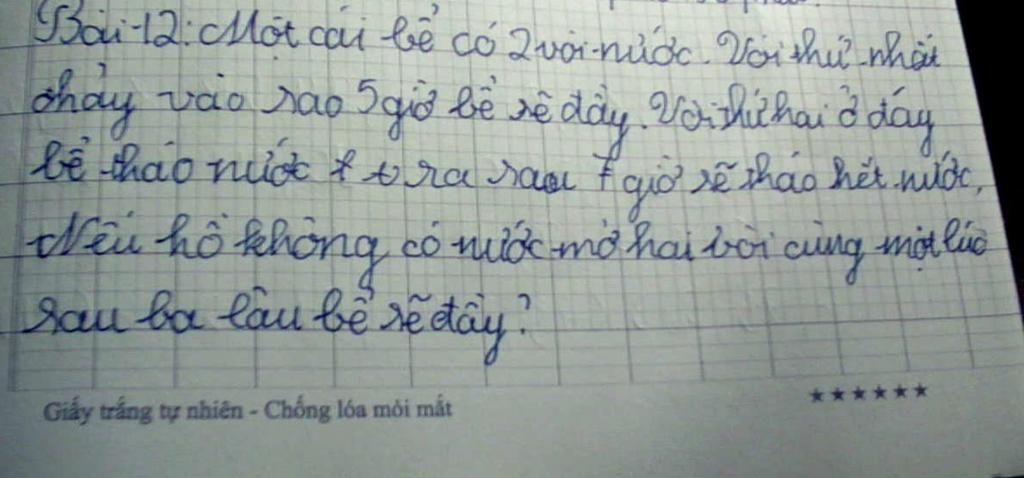 Bài 12: Một cái bể có 2 vòi nước. Vòi thứ nhất
chảy vào sao 5 giờ bể sẽ đầy. Vòi thứ hai ở đáy
bể tháo nước ra sau 7 giờ sẽ tháo hết nước,
Nếu hồ không có nước mở hai vòi cùng một lúc
sau ba lâu bể sẽ đầy?
Giấy trắng tự nhiên - Chống lóa mỏi mắt